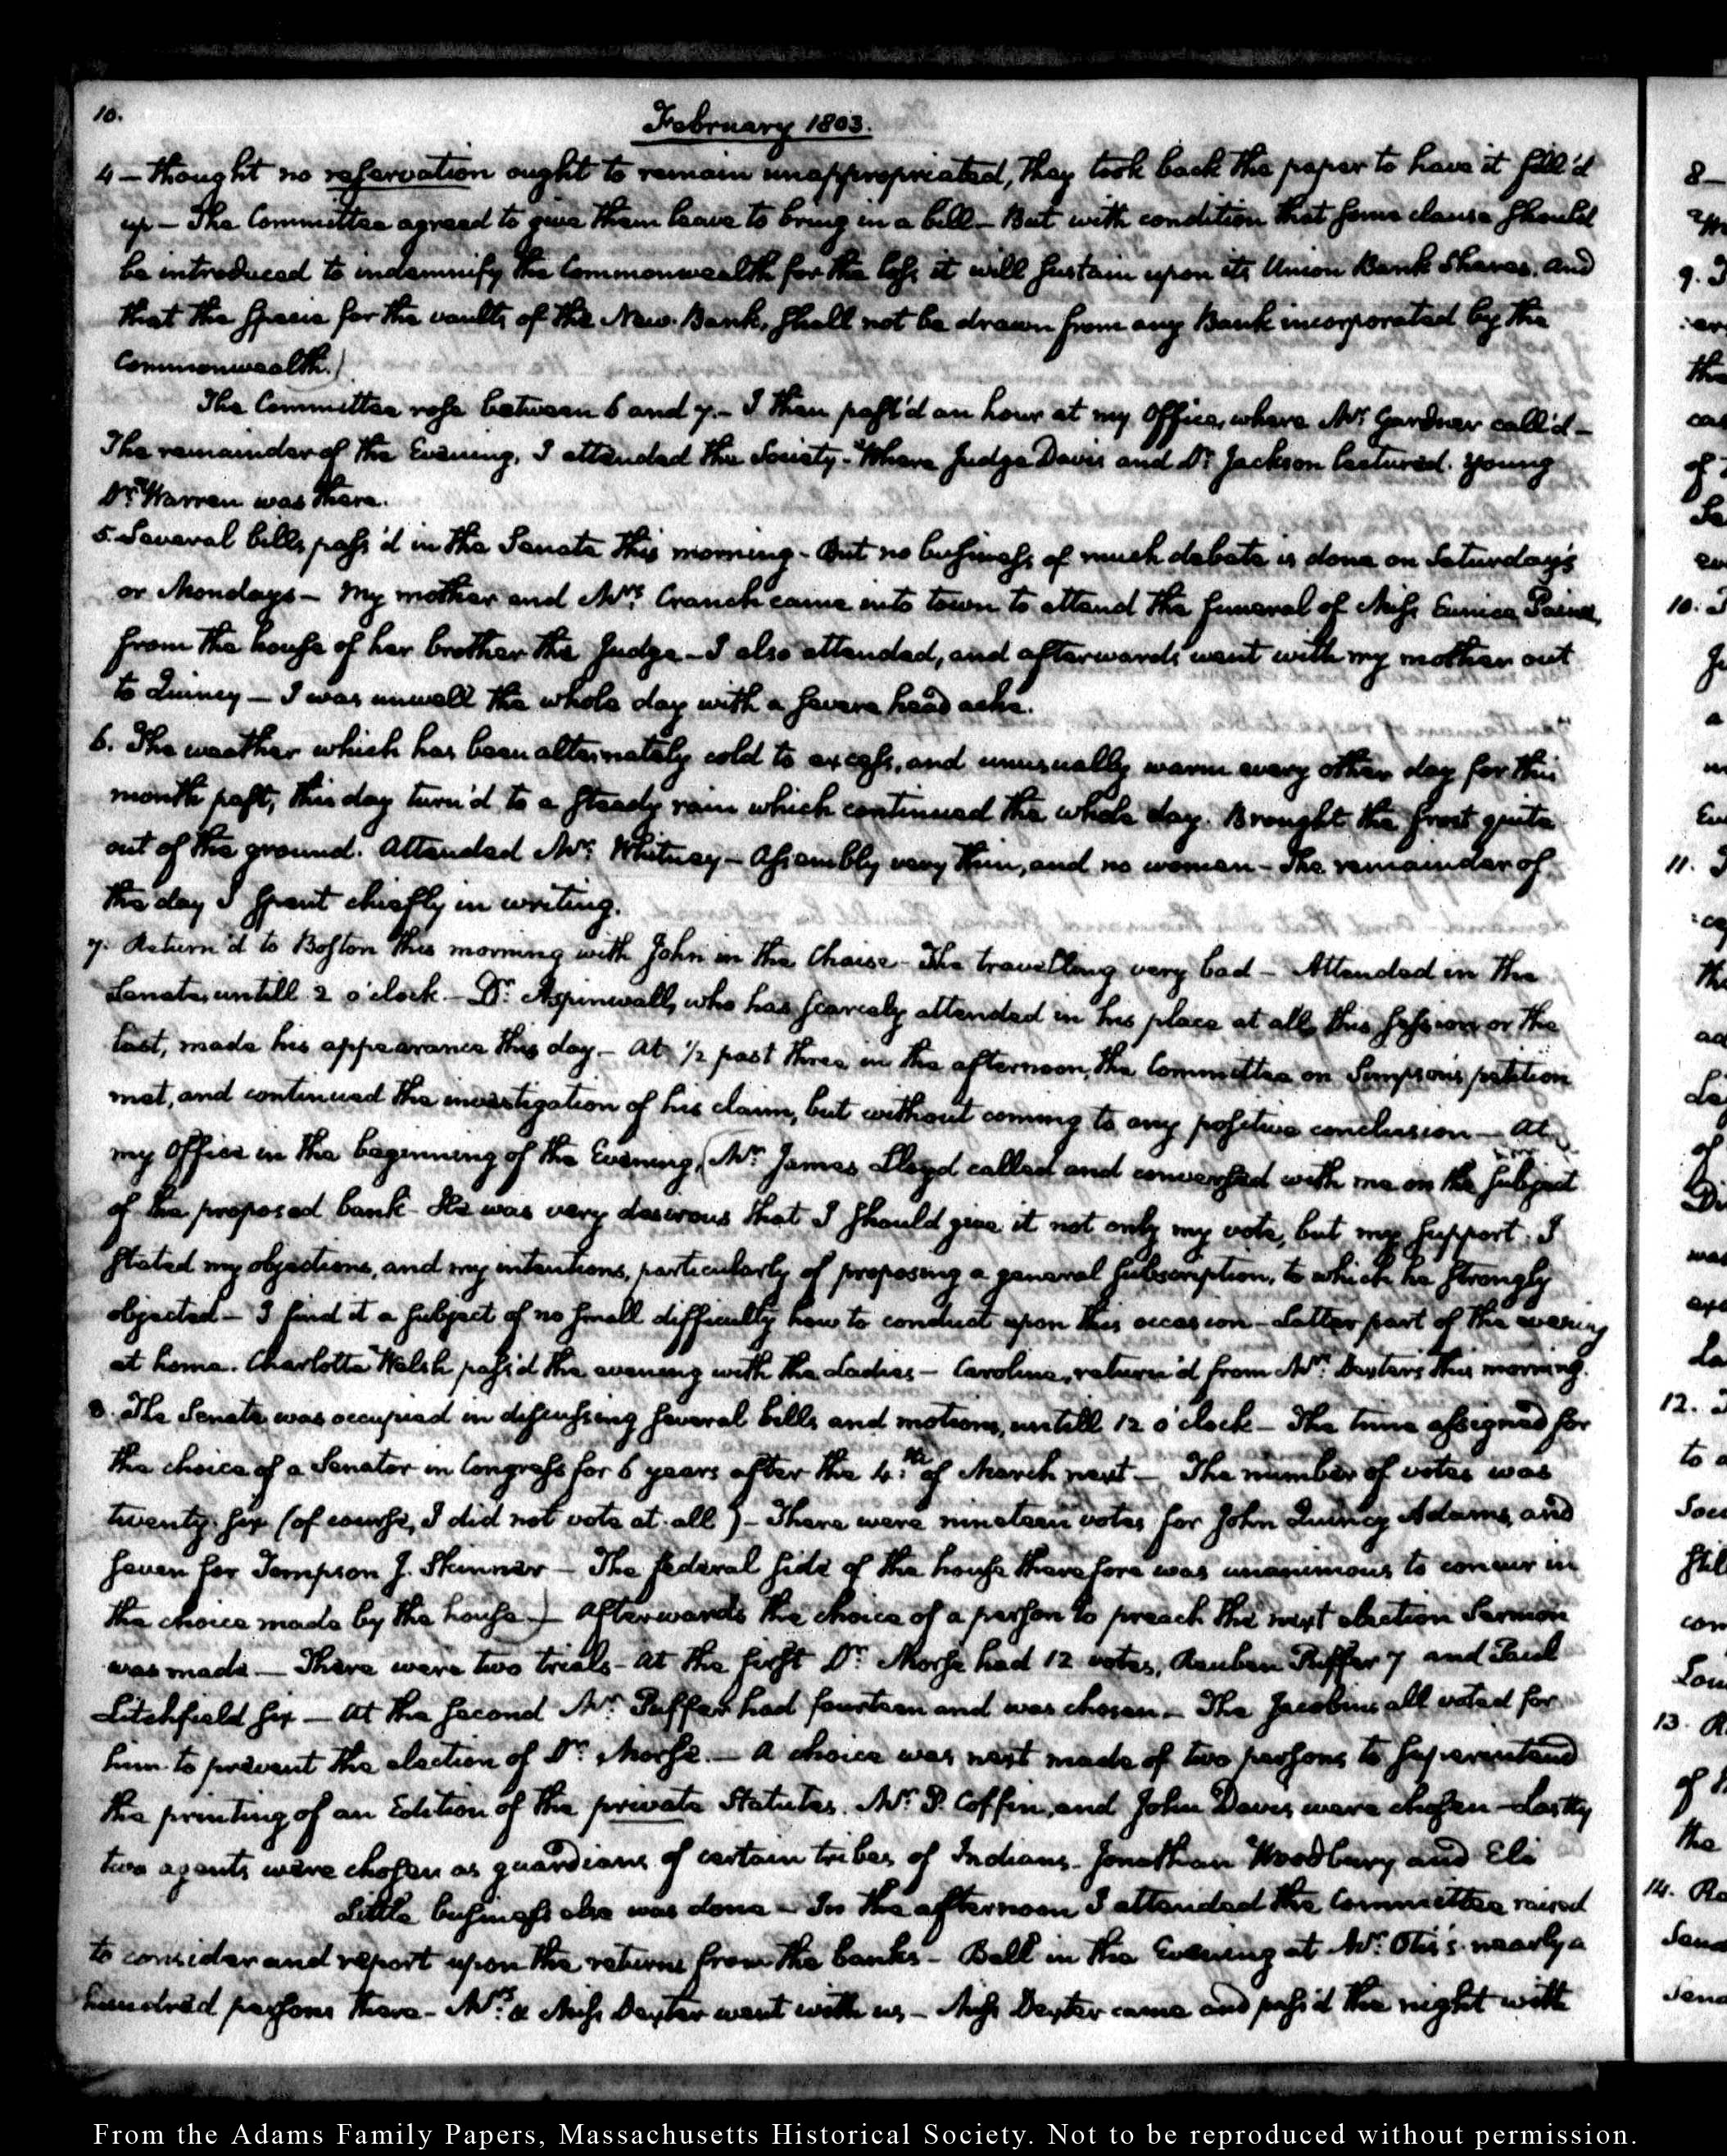 10.
February 1803.
4 — thought no reservation ought to remain unappropriated, they took back the paper to have it fill'd
up — The Committee agreed to give them leave to bring in a bill — But with condition that some clause should
be introduced to indemnify the Commonwealth for the loss it will sustain upon its Union Bank Shares. and
that the specie for the vaults of the New Bank, shall not be drawn from any Bank incorporated by the
Commonwealth.)
The Committee rose between 6 and 7. — I then pass'd an hour at my Office, where Mr. Gardner call'd —
The remainder of the Evening, I attended the Society — Where Judge Davis and Dr. Jackson lectured. Young
Dr. Warren was there.
5. Several bills pass'd in the Senate this morning — But no business of much debate is done on Saturdays
or Mondays — My mother and Mrs. Cranch came into town to attend the funeral of Miss Eunice Paine,
from the house of her brother the Judge — I also attended, and afterwards went with my mother out
to Quincy — I was unwell the whole day with a severe head ache.
6. The weather which has been alternately cold to excess, and unusually warm every other day for this
month past, this day turn'd to a steady rain which continued the whole day. Brought the frost quite
out of the ground. Attended Mr. Whitney — Assembly very thin, and no women — The remainder of
the day I spent chiefly in writing.
7. Return'd to Boston this morning with John in the Chaise — The travelling very bad — Attended in the
Senate, untill 2 o'clock — Dr. Aspinwall, who has scarcely attended in his place at all, this session or the
last, made his appearance this day — At 1/2 past three in the afternoon, the Committee on Simpson's petition
met, and continued the investigation of his claim, but without coming to any positive conclusion — At
my Office in the beginning of the Evening, (Mr. James Lloyd called and conversed with me on the subject
of the proposed bank — He was very desirous that I should give it not only my vote, but my support. I
stated my objections, and my intentions, particularly of proposing a general subscription, to which he strongly
objected — I find it a subject of no small difficulty how to conduct upon this occasion — Latter part of the evening
at home. Charlotte Welsh pass'd the evening with the Ladies — Caroline, return'd from Mr. Dexter's this morning.
8. The Senate was occupied in discussing several bills and motions, untill 12 o'clock — The time assigned for
the choice of a Senator in Congress for 6 years after the 4th. of March next — The number of votes was
twenty-six (of course, I did not vote at all) — There were nineteen votes for John Quincy Adams, and
seven for Tompson J. Skinner — The federal side of the house therefore was unanimous to concur in
the choice made by the house) — Afterwards the choice of a person to preach the next election Sermon
was made — There were two trials — At the first Dr. Morse had 12 votes, Reuben Puffer 7 and Paul
Litchfield six — At the second Mr. Puffer had fourteen and was chosen — The Jacobins all voted for
him to prevent the election of Dr. Morse. — A choice was next made of two persons to superintend
the printing of an Edition of the private Statutes. Mr. P. Coffin, and John Davis were chosen — Lastly
two agents were chosen as guardians of certain tribes of Indians — Jonathan Woodbury and Eli
Little business else was done — In the afternoon I attended the Committee raised
to consider and report upon the returns from the banks — Ball in the Evening at Mr. Otis's. nearly a
hundred persons there — Mrs. & Miss Dexter went with us — Miss Dexter came and pass'd the night with
From the Adams Family Papers, Massachusetts Historical Society. Not to be reproduced without permission.